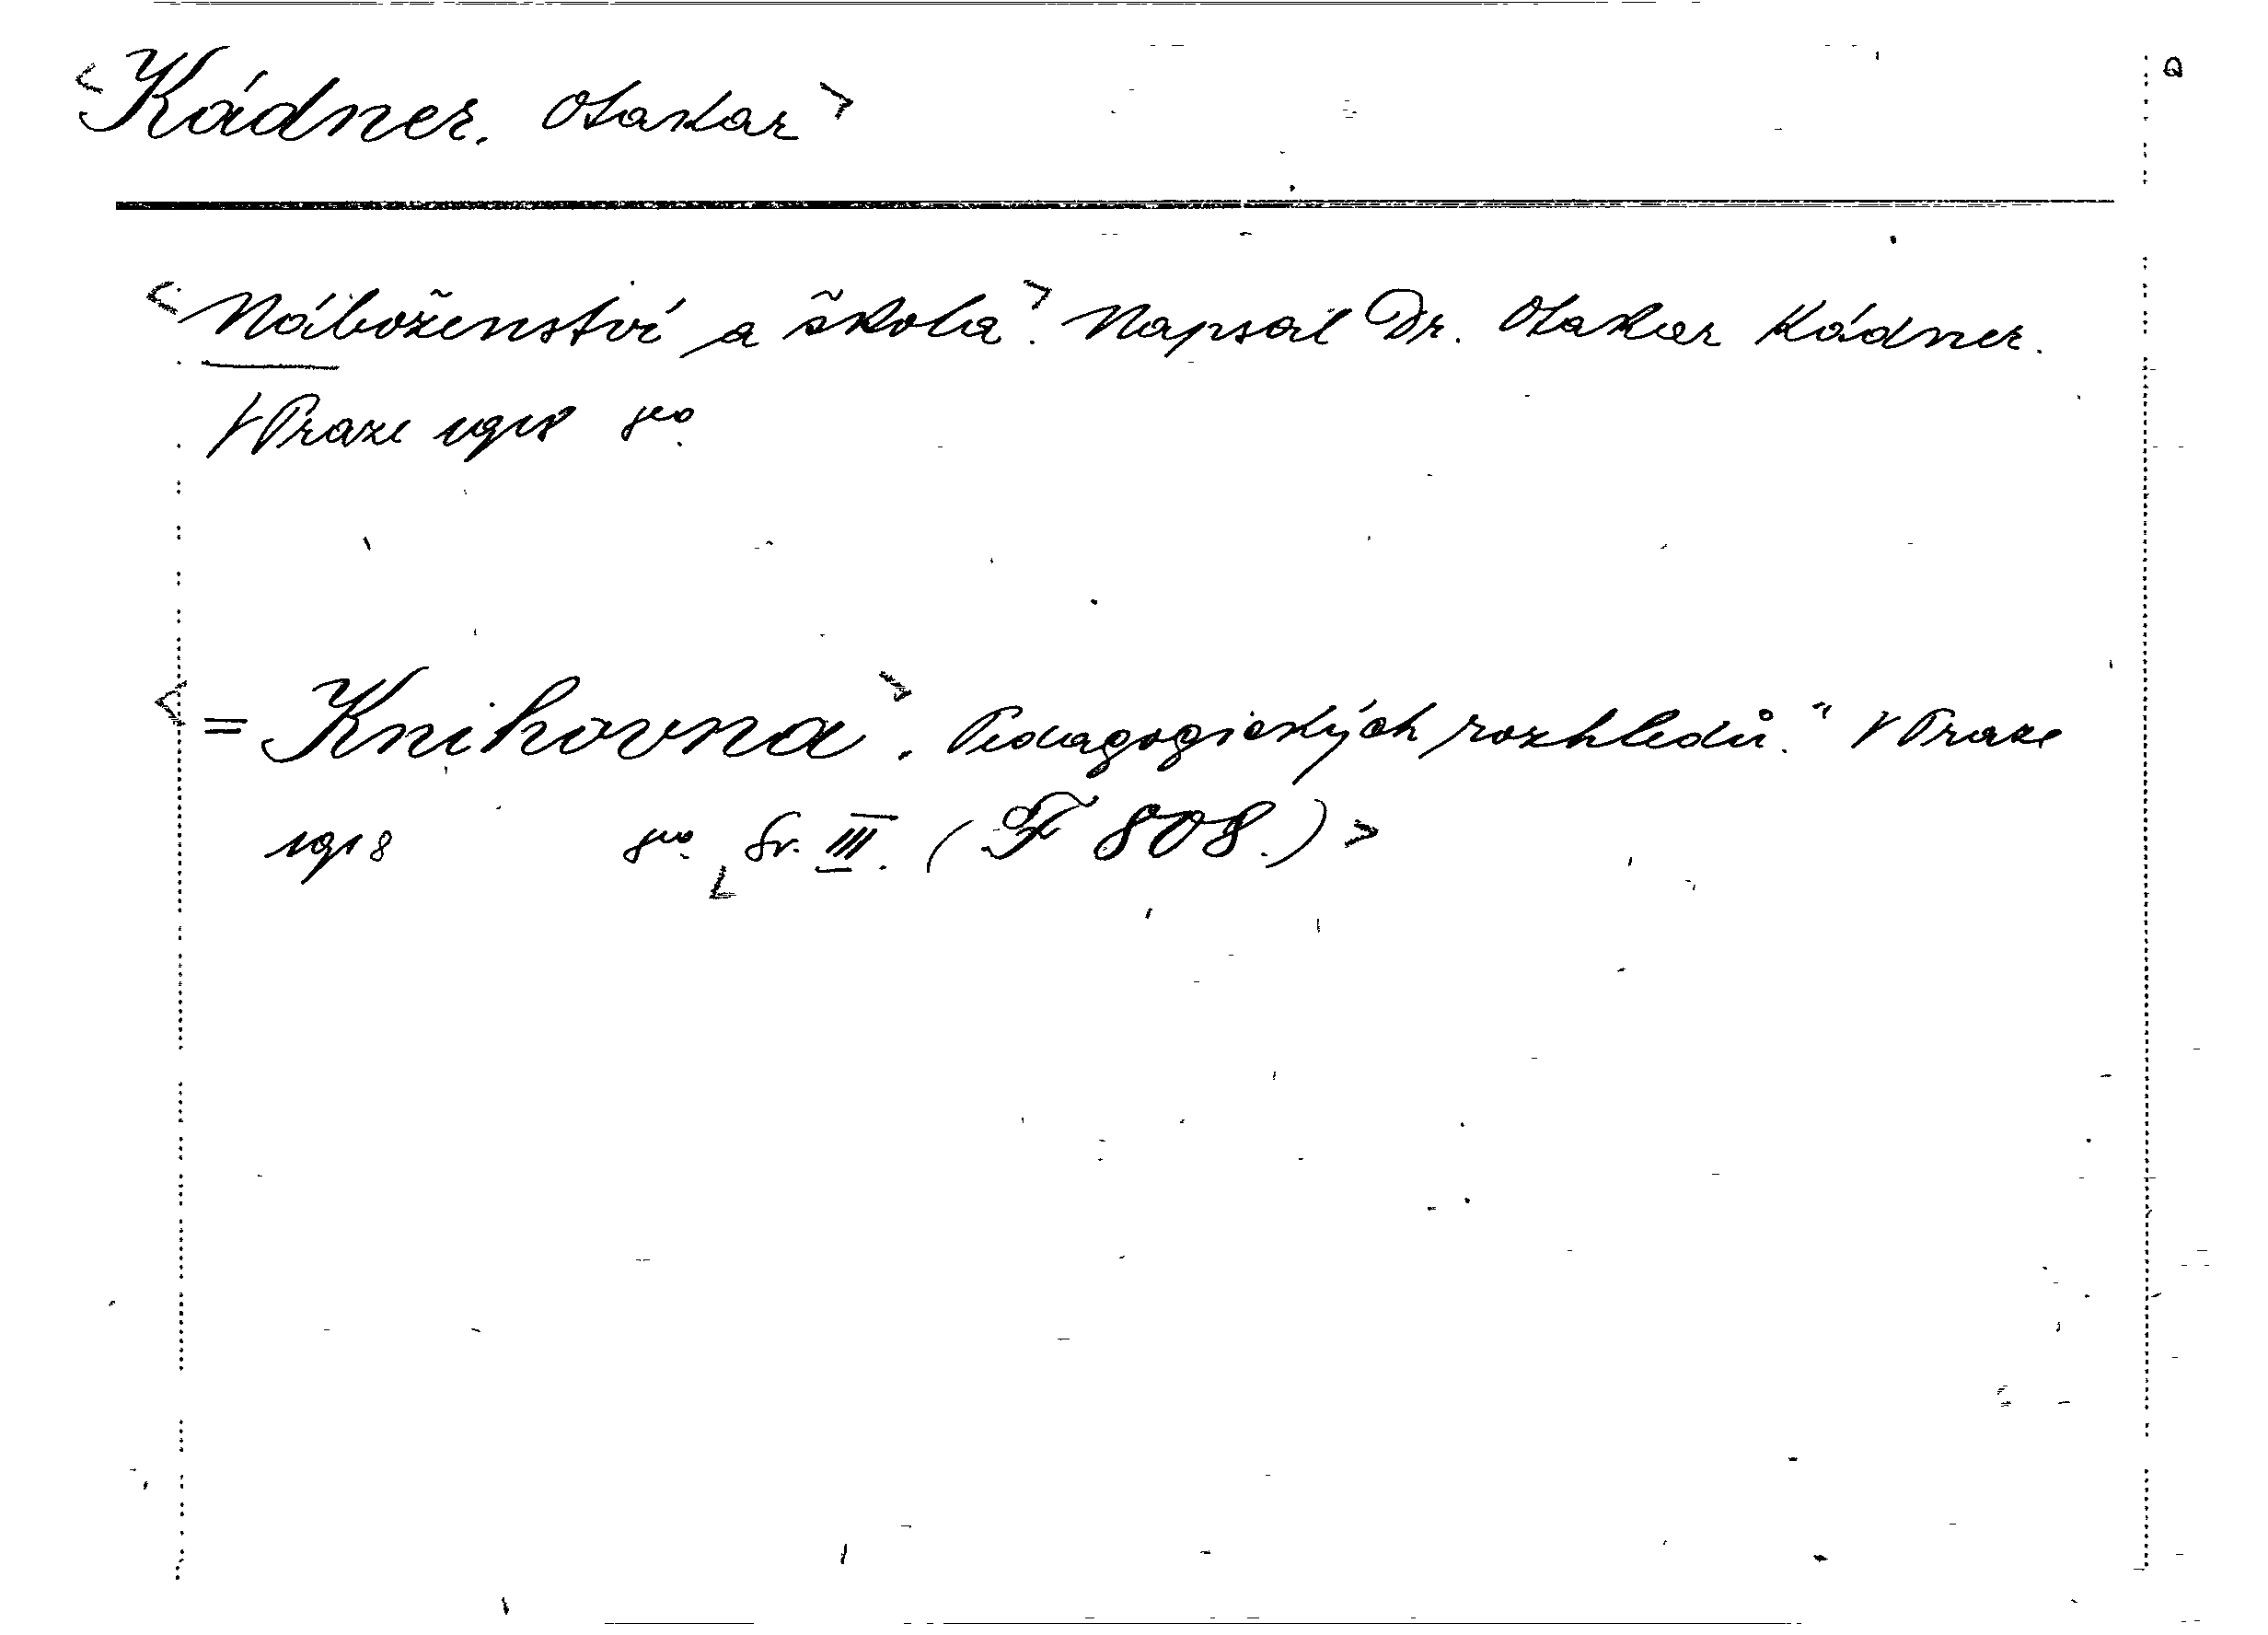 <Kádner. Otakar>
<Náboženství a škola>. Napsal Dr. Otakar Kádner.
V Praze 1918 8vo.
<= Knihovna>. Pedagogických rozhledů." V Praze
1918 8vo. <Sv. III. (F 808.)>